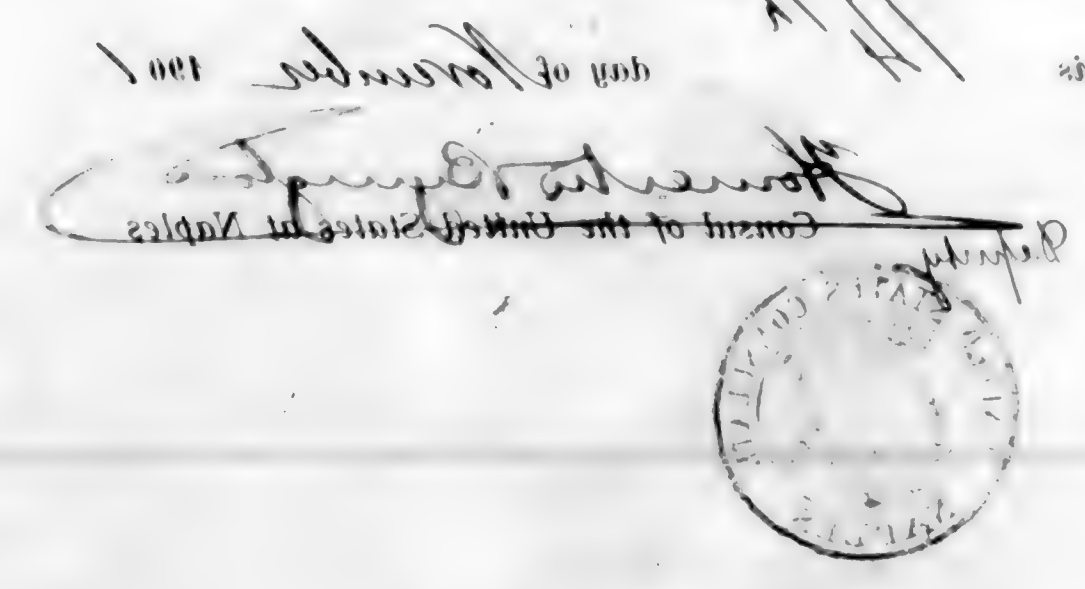 is 14th day of November 1901
Homer M. Byington
Deputy Consul of the United States at Naples
NAPLES